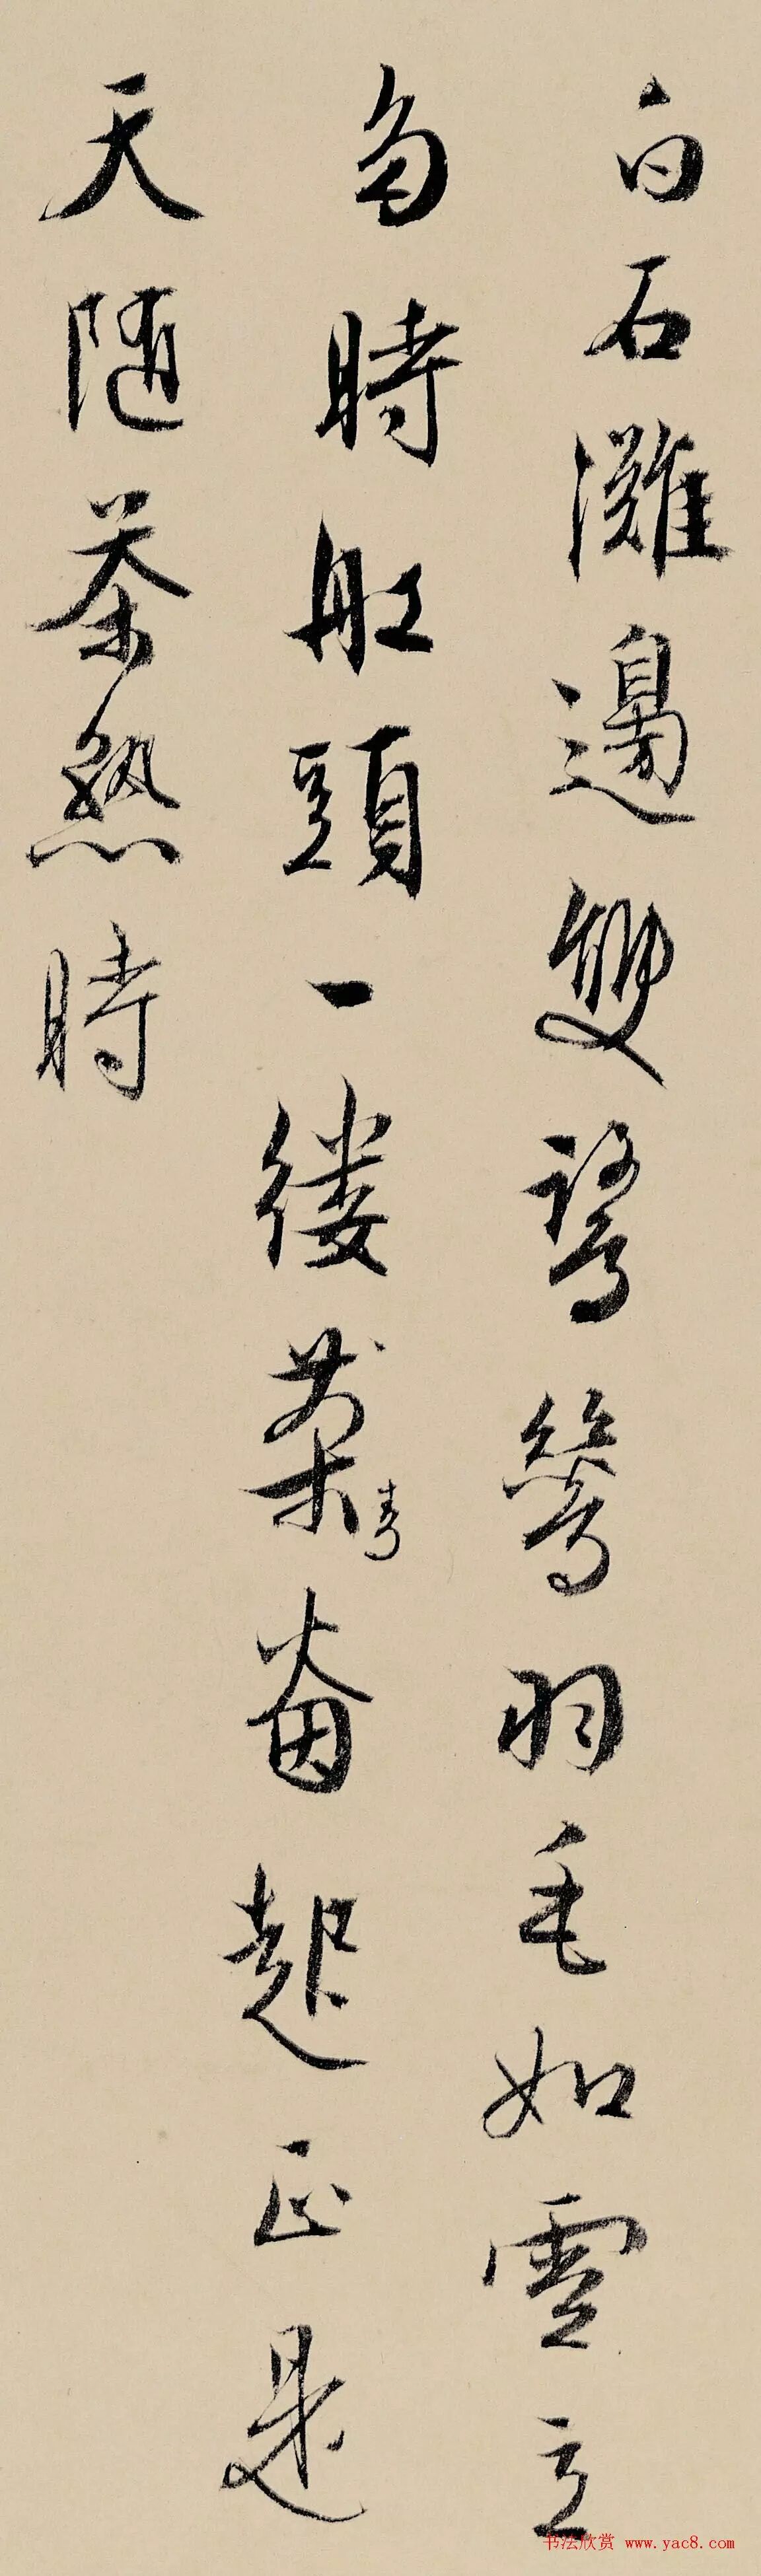 白石灘邊雙鷺鷥羽毛如雪立
多時舡頭一縷青烟起正是
天随茶熟時
书法欣赏 www.yac8.com